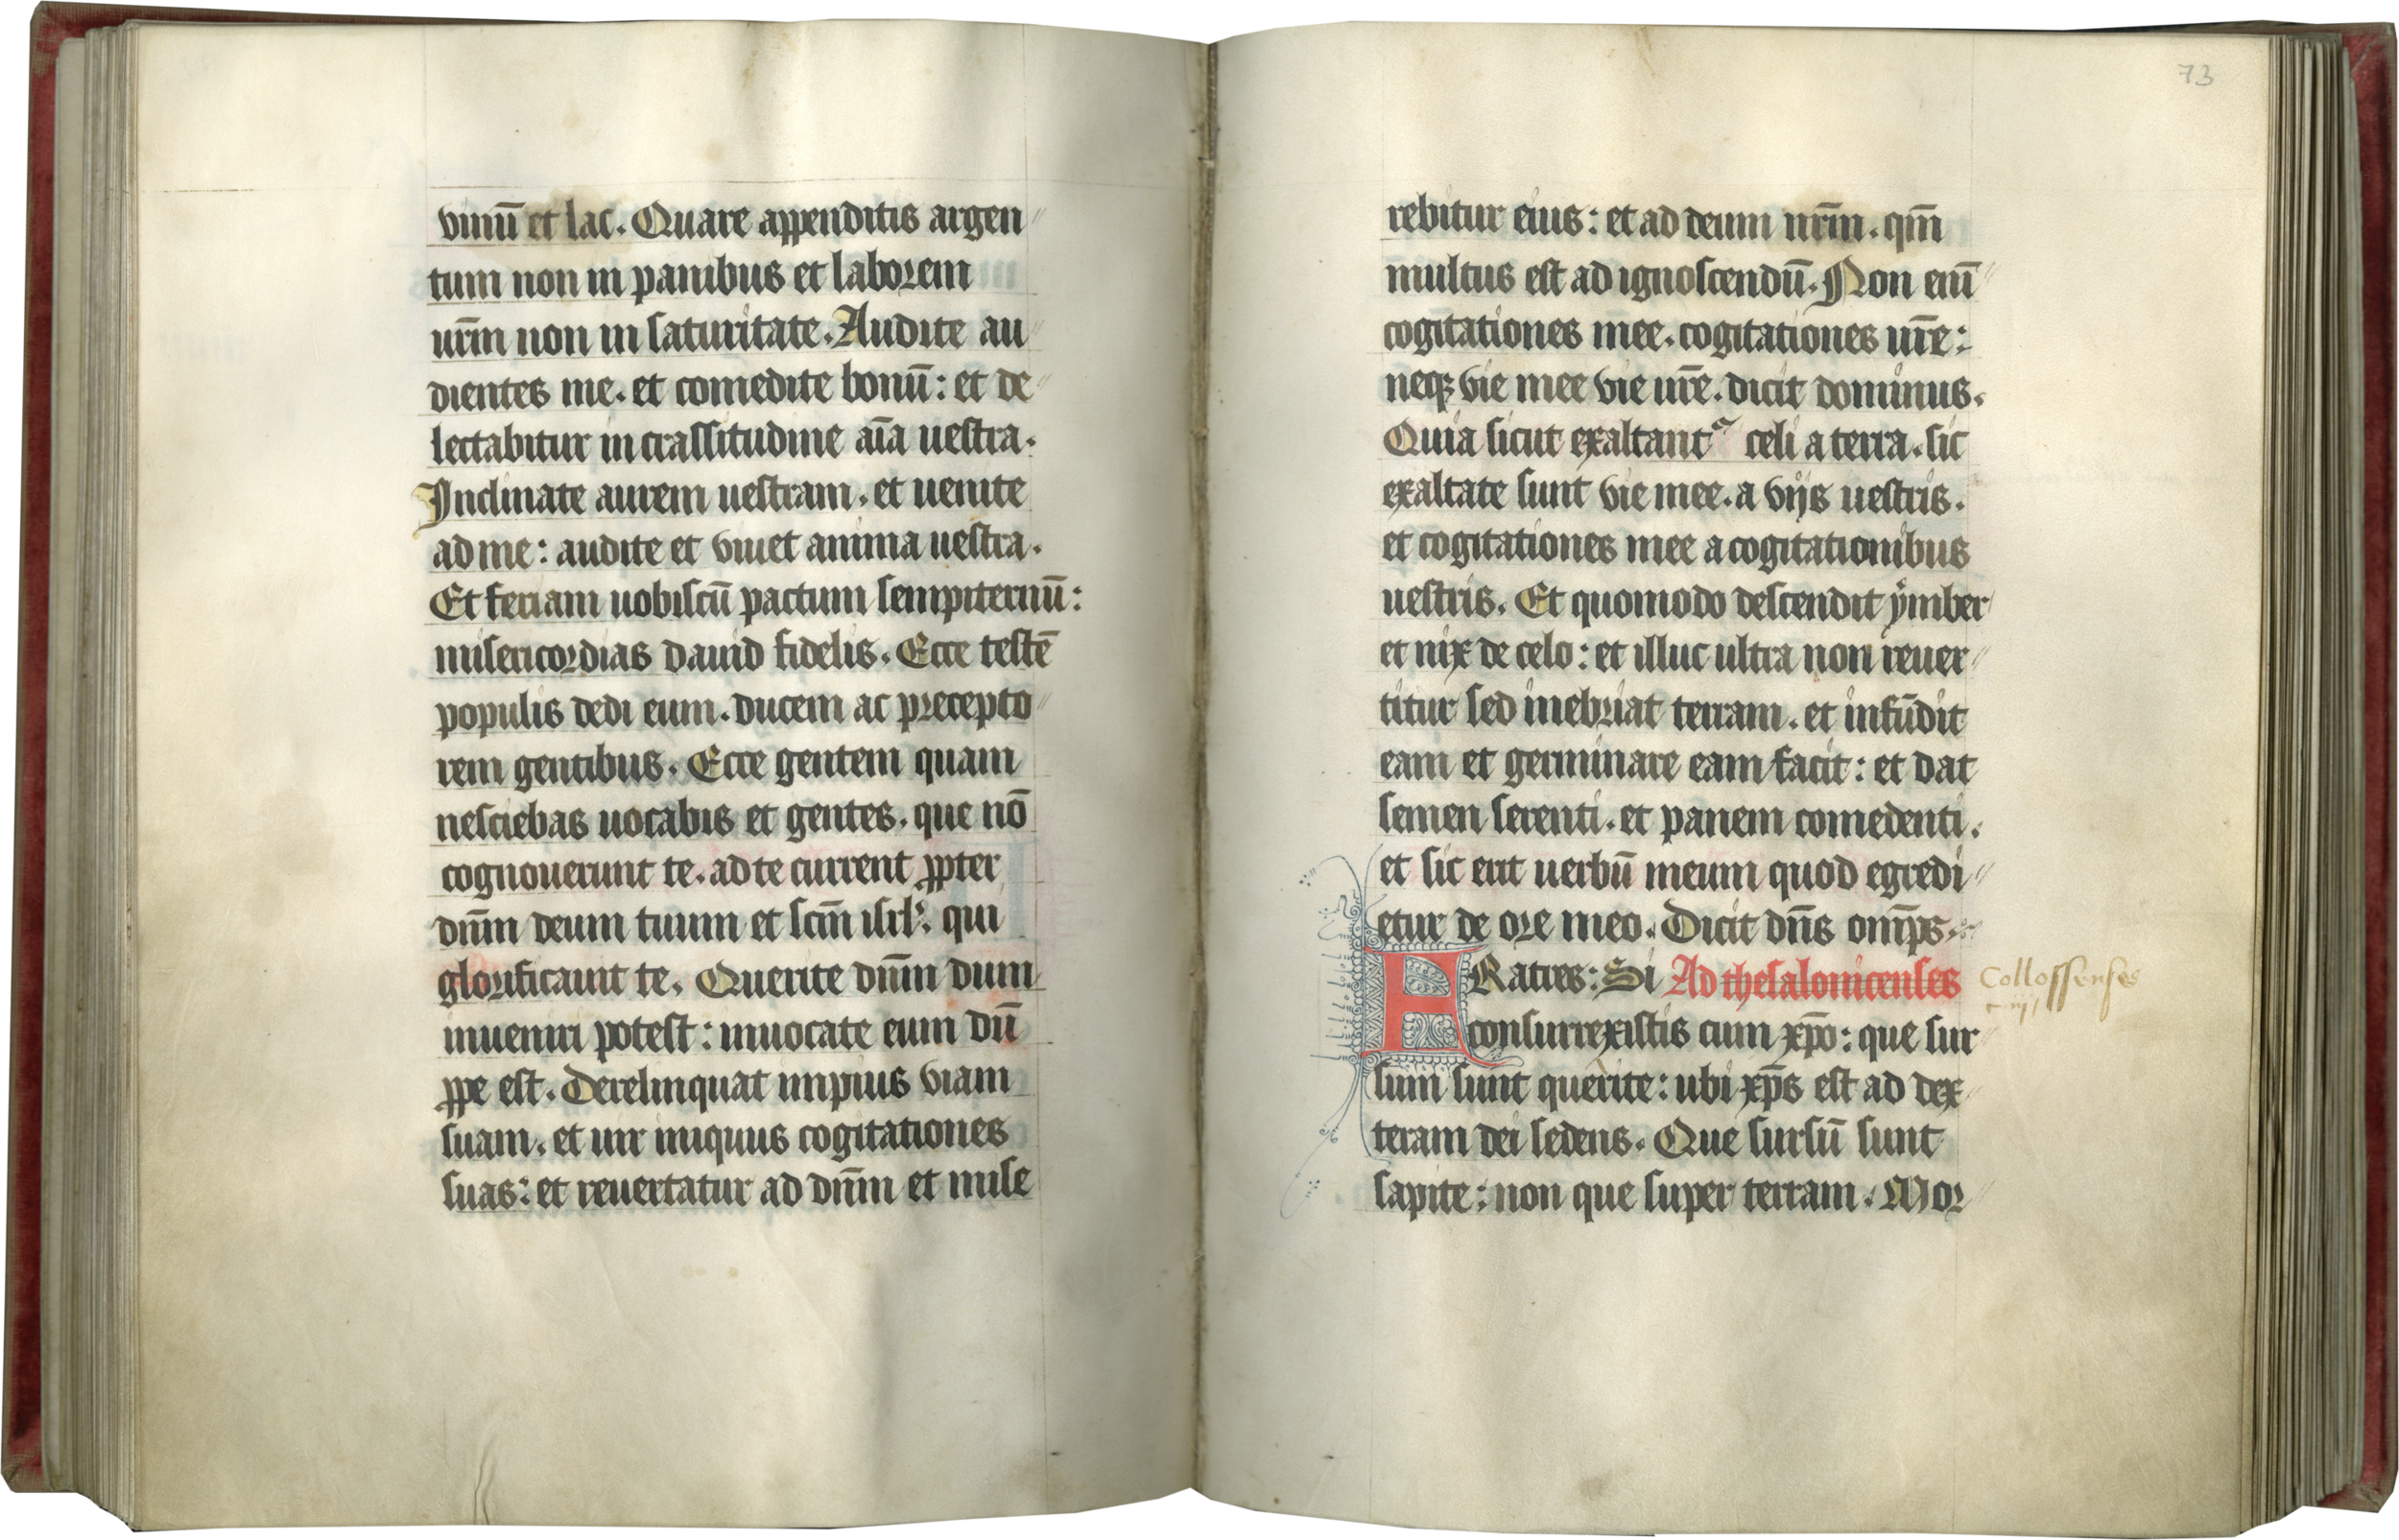 vinū et lac. Quare appenditis argen
tum non in panibus et laborem
urm̄ non in saturitate. Audite au
dientes me. et comedite bonū: et de
lectabitur in crassitudine aīa uestra.
Inclinate aurem uestram. et uenite
ad me: audite et viuet anima uestra.
Et feriam uobiscū pactum sempiternū:
misericordias dauid fidelis. Ecce testē
populis dedi eum. ducem ac precepto
rem gentibus. Ecce gentem quam
nesciebas uocabis et gentes. que nō
cognouerunt te. ad te current ꝓpter
dn̄m deum tuum et scm̄ isrl': qui
glorificauit te. Querite dn̄m dum
inueniri potest: inuocate eum dū
ꝓpe est. Derelinquat impius viam
suam. et uir iniquus cogitationes
suas: et reuertatur ad dn̄m et mise
73
rebitur eius: et ad deum nr̄m. qm̄
multus est ad ignoscendū. Non enī
cogitationes mee. cogitationes ur̄e:
neqꝫ vie mee vie ur̄e. dicit dominus.
Quia sicut exaltantᷣ celi a terra. sic
exaltate sunt vie mee. a vijs uestris.
et cogitationes mee a cogitationibus
uestris. Et quomodo descendit ymber
et nix de celo: et illuc ultra non reuer
titur sed inebriat terram. et infūdit
eam et germinare eam facit: et dat
semen serenti. et panem comedenti.
et sic erit uerbū meum quod egredi
etur de ore meo. Dicit dn̄s omp̄s.
FRatres: Si Ad thesalonicenses Collossenses
c. iij
consurrexistis cum xp̄o: que sur
sum sunt querite: ubi xp̄s est ad dex
teram dei sedens. Que sursū sunt
sapite: non que super terram. Mor